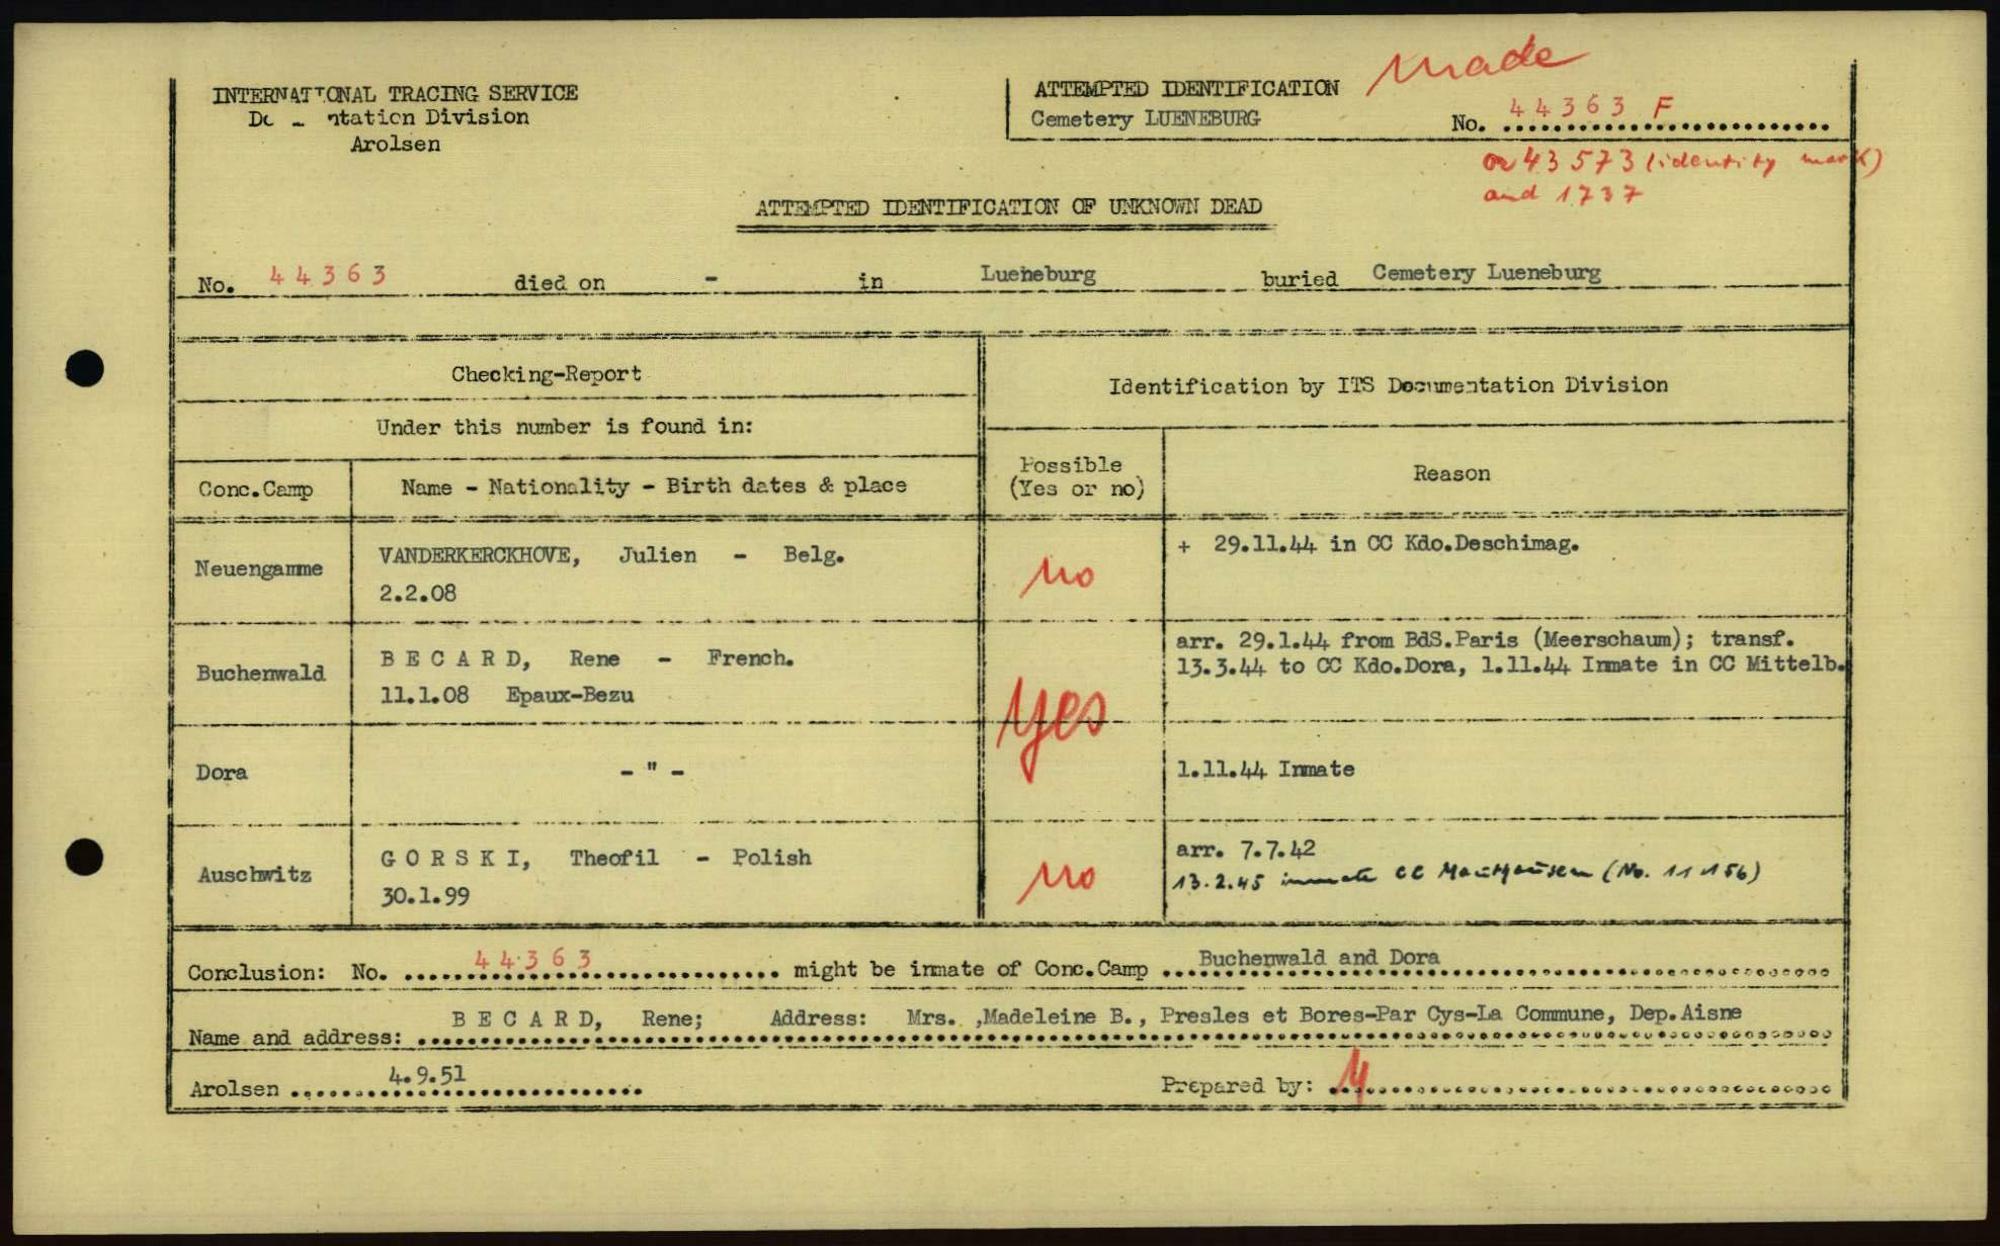 made
INTERNATIONAL TRACING SERVICE
ntation Division
Arolsen
ATTEMPTED IDENTIFICATION
Cemetery LUENEBURG
No. 44363 F
or 43573 (identity mark)
and 1737
ATTEMPTED IDENTIFICATION OF UNKNOWN DEAD
No. 44363 died on - in Lueneburg buried Cemetery Lueneburg
Checking-Report
Identification by ITS Documentation Division
Under this number is found in:
Conc.Camp
Name - Nationality - Birth dates & place
Possible
(Yes or no)
Reason
Neuengamme
VANDERKERCKHOVE, Julien - Belg.
2.2.08
no
+ 29.11.44 in CC Kdo.Deschimag.
Buchenwald
B E C A R D, Rene - French.
11.1.08 Epaux-Bezu
yes
arr. 29.1.44 from BdS.Paris (Meerschaum); transf.
13.3.44 to CC Kdo.Dora, 1.11.44 Inmate in CC Mittelb.
Dora
- " -
1.11.44 Inmate
Auschwitz
G O R S K I, Theofil - Polish
30.1.99
no
arr. 7.7.42
13.2.45 inmate CC Mauthausen (No. 11156)
Conclusion: No. 44363 might be inmate of Conc.Camp Buchenwald and Dora
Name and address: B E C A R D, Rene; Address: Mrs. ,Madeleine B., Presles et Bores-Par Cys-La Commune, Dep.Aisne
Arolsen 4.9.51
Prepared by: